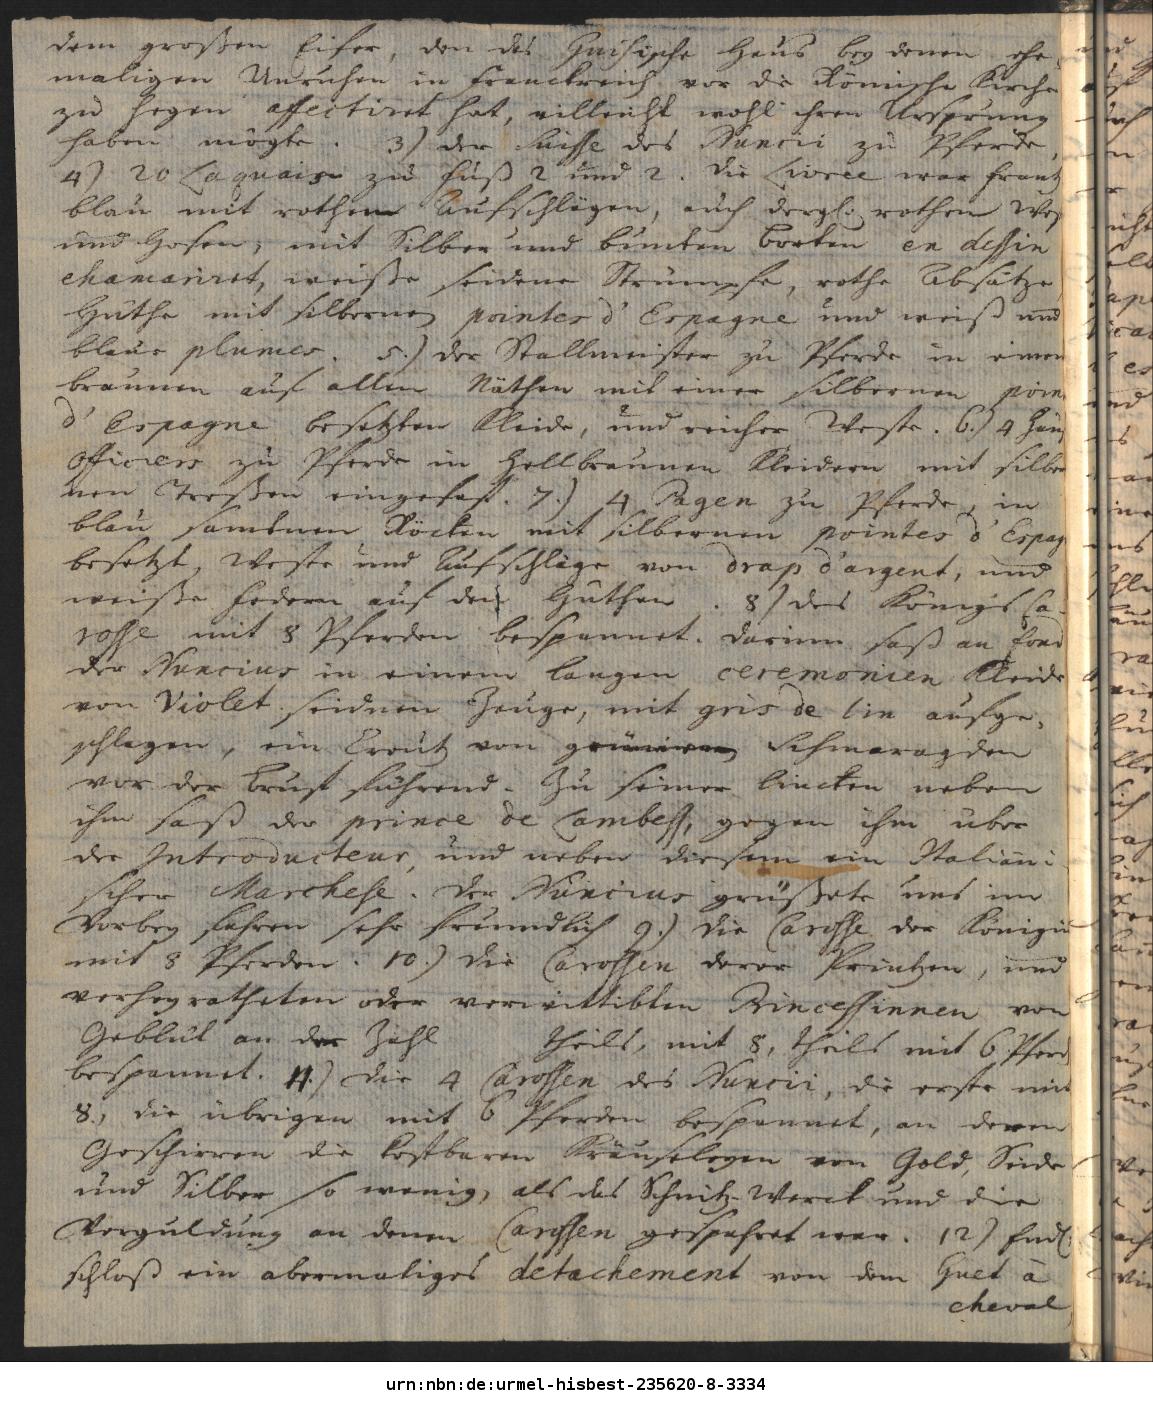 dem großen Eifer, den das Guisische Haus bey denen ehe-
maligen Unruhen in Franckreich vor die Römische Kirche
zu hegen affectiret hat, villeicht wohl ihren Ursprung
haben mögte. 3) der Suisse des Nuncii zu Pferde,
4) 20 Laquais zu Fuß 2 und 2. die Livree war frantz
blau mit rothem Aufschlägen, auch dergl. rothen West
und Hosen, mit Silber und bunten Borten en dessin
chamariret, weiße seidene Strümpfe, rothe Absätze
Hüthe mit silbernen pointes d'Espagne und weiß und
blaue plumes. 5.) der Stallmeister zu Pferde in einem
braunen auf allen Näthen mit einer silbernen poin
d'Espagne besetzten Kleide, und reicher Weste. 6.) 4 Hauß
officiers zu Pferde in hellbraunen Kleidern mit silber
nen Treßen eingefast. 7.) 4 Pagen zu Pferde, in
blau samtnen Röcken mit silbernen pointes d'Espag
besetzt, Weste und Aufschläge von drap d'argent, und
weiße Federn auf den Hüthen. 8) des Königs Ca-
rosse mit 8 Pferden bespannet. darinn saß an fond
der Nuncius in einem langen ceremonien Kleide
von Violet seidnen Zeuge, mit gris de lin aufge-
schlagen, ein Creutz von Schmaragden
vor der Brust führend. Zu seiner lincken neben
ihm saß der prince de Lambess, gegen ihm über
der Introducteur, und neben diesem ein Italiäni
scher Marchese. der Nuncius grüßete uns im
Vorbey fahren sehr freundlich 9.) die Carosse der Königin
mit 8 Pferden. 10.) die Carossen derer Printzen, und
verheyratheten oder verwittibten Princessinnen von
Geblüt an der Zahl theils, mit 8, theils mit 6 Pferd
bespannet. 11.) die 4 Carossen des Nuncii, die erste mit
8., die übrigen mit 6 Pferden bespannet, an deren
Geschirren die kostbaren von Gold, Seide
und Silber so wenig, als das Schnitz-Werck und die
Verguldung an denen Carossen gespahret war. 12) Endl.
schloß ein abermaliges detachement von dem Guet à
cheval
urn:nbn:de:urmel-hisbest-235620-8-3334